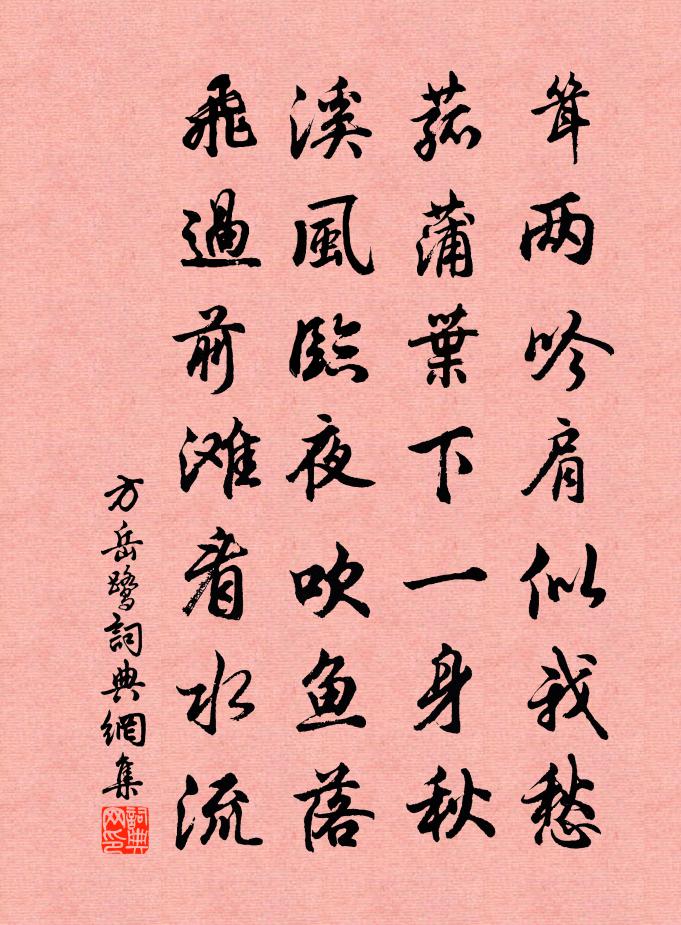 耸两吟肩似我愁
菰蒲葉下一身秋
溪風臨夜吹鱼落
飛過前滩看水流
方岳鹭詞典網集
詞典网印